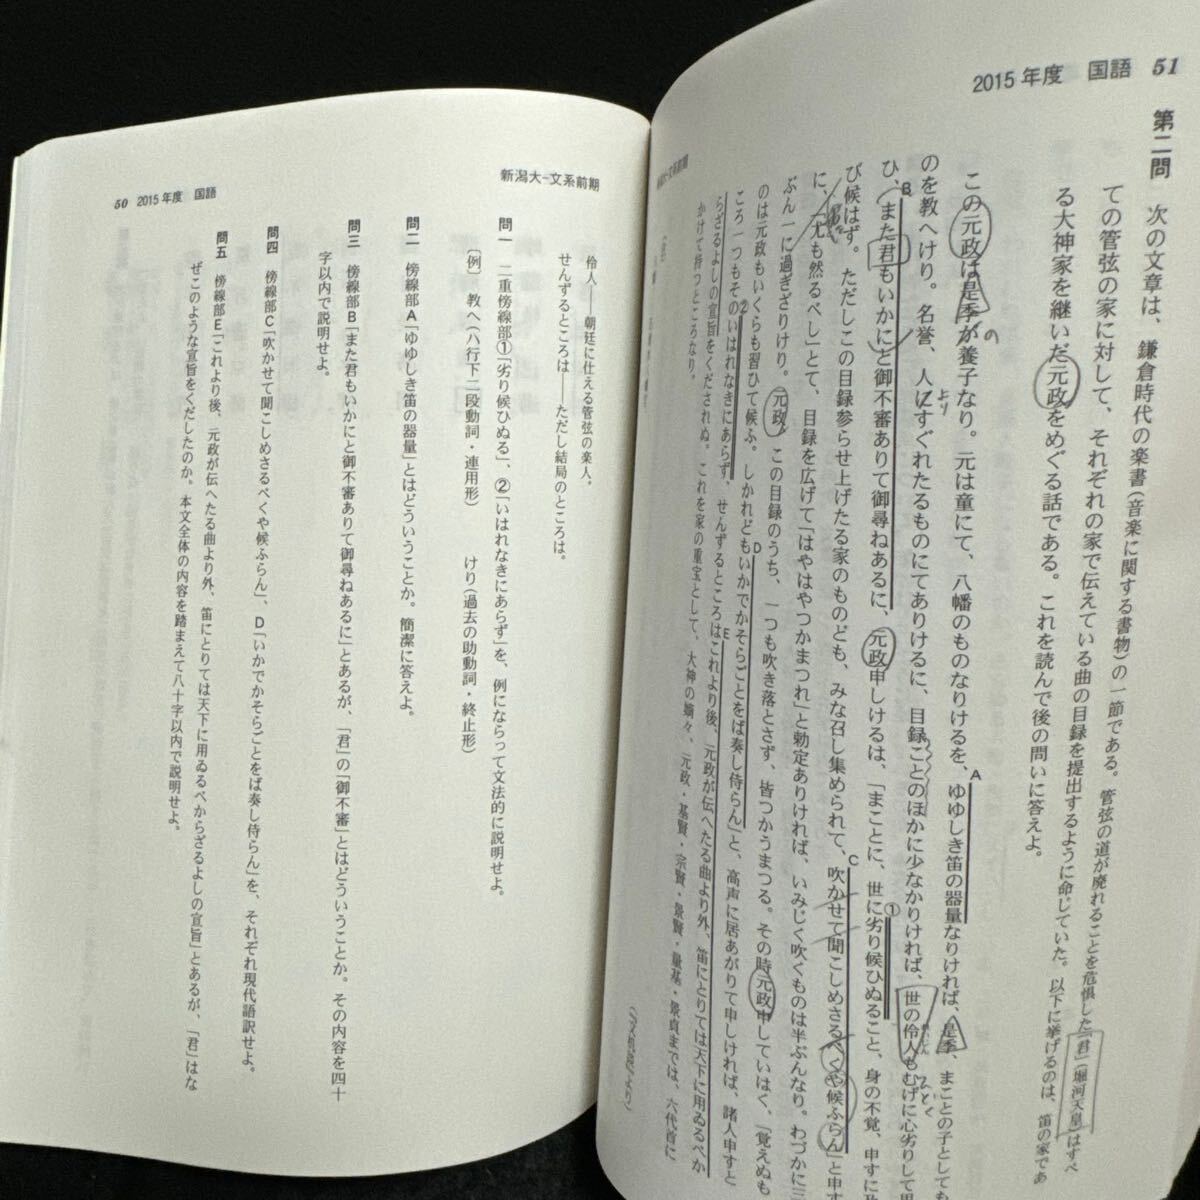 2015年度 国語 51
第二問 次の文章は、鎌倉時代の楽書(音楽に関する書物)の一節である。管弦の道が廃れることを危惧した「君」(堀河天皇)はすべ
ての管弦の家に対して、それぞれの家で伝えている曲の目録を提出するように命じていた。以下に挙げるのは、笛の家であ
る大神家を継いだ元政をめぐる話である。これを読んで後の問いに答えよ。
この元政は是季が養子なり。元は童にて、八幡のものなりけるを、
A
ゆゆしき笛の器量なりければ、是季、まことの子としても
のを教へけり。名誉、人にすぐれたるものにてありけるに、目録ことのほかに少なかりければ、世の伶人もむげに心劣りして
ひ、
B
また君もいかにと御不審ありて御尋ねあるに、元政申しけるは、「まことに、世に
①
劣り候ひぬること、身の不覚、申すに
び候はず。ただしこの目録参らせ上げたる家のものども、みな召し集められて、
C
吹かせて聞こしめさるべくや候ふらん」と申
に、「尤も然るべし」とて、目録を広げて「はやはやつかまつれ」と勅定ありければ、いみじく吹くものは半ぶんなり。わづかに三
ぶん一に過ぎざりけり。元政、この目録のうち、一つも吹き落とさず、皆つかうまつる。その時元政申していはく、「覚えぬも
のは元政もいくらも習ひて候ふ。しかれども
D
いかでかそらごとをば奏し侍らん」と、高声に居あがりて申しければ、諸人申すと
ころ一つもその
②
いはれなきにあらず。せんずるところは
E
これより後、元政が伝へたる曲より外、笛にとりては天下に用ゐるべか
らざるよしの宣旨をくだされぬ。これを家の重宝として、大神の嫡々、元政・基賢・宗賢・景賢・量基・景貞までは、六代首に
かけて持つところなり。
新潟大-文系前期
50 2015年度 国語
伶人——朝廷に仕える管弦の楽人。
せんずるところは——ただし結局のところは。
問一 二重傍線部①「劣り候ひぬる」、②「いはれなきにあらず」を、例にならって文法的に説明せよ。
〔例〕 教へ(ハ行下二段動詞・連用形) けり(過去の助動詞・終止形)
問二 傍線部A「ゆゆしき笛の器量」とはどういうことか。簡潔に答えよ。
問三 傍線部B「また君もいかにと御不審ありて御尋ねあるに」とあるが、「君」の「御不審」とはどういうことか。その内容を四十
字以内で説明せよ。
問四 傍線部C「吹かせて聞こしめさるべくや候ふらん」、D「いかでかそらごとをば奏し侍らん」を、それぞれ現代語訳せよ。
問五 傍線部E「これより後、元政が伝へたる曲より外、笛にとりては天下に用ゐるべからざるよしの宣旨」とあるが、「君」はな
ぜこのような宣旨をくだしたのか。本文全体の内容を踏まえて八十字以内で説明せよ。